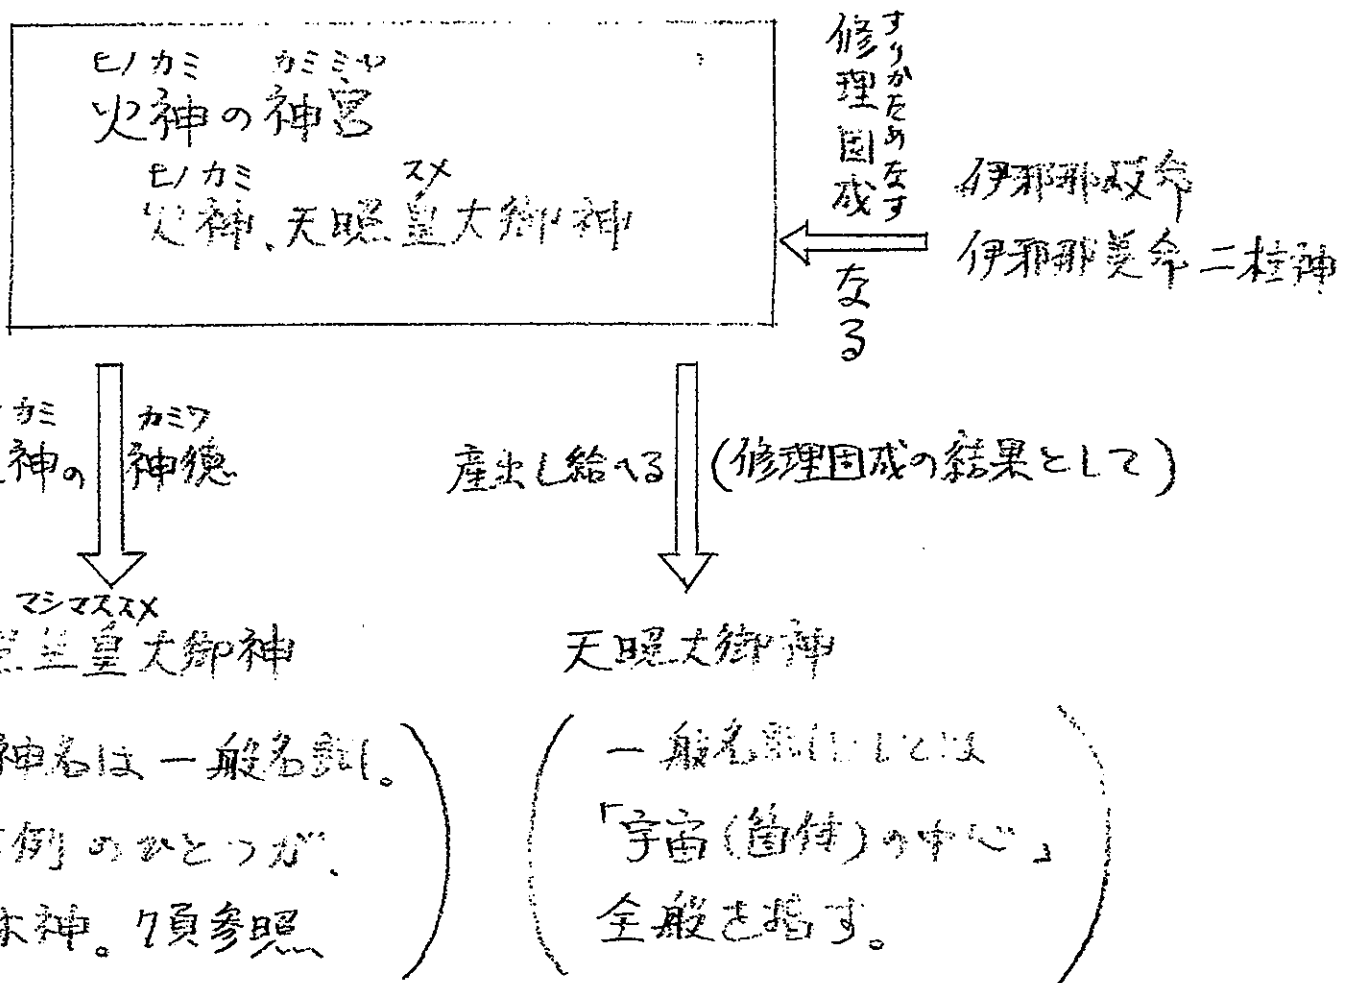 ヒノカミ カミミヤ
火神の神宮
ヒノカミ スメ
火神、天照皇大御神
すりかためなす
修理固成
なる
伊邪那岐命
伊邪那美命二柱神
カミ カミワ
神の神徳
産出し給へる (修理固成の結果として)
マシマススメ
皇大御神
天照大御神
神名は一般名詞。
例のひとつが、
神。7頁参照
一般名詞としては
「宇宙(箇体)の中心」
全般を指す。